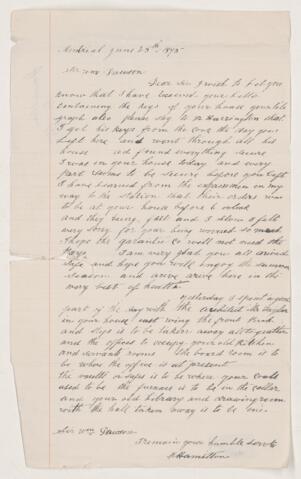 Montreal June 25th 1895
Sir Wm Dawson
Dear Sir I wish to let you
know that I have received your letter
containing the keys of your house your tele
graph also please say to Dr Harrington that
I got his keys from the cove the day you
left here and went through all his
house and found everything secure
I was in your house today and every
part seems to be secure before you left
I have learned from the expressman on my
way to the station that their orders was
to be at your house before I
and they being past and I
very sorry for your being worried so much
I hope the so well not need the
keys I am very glad you all arrived
safe and hope you will enjoy the summer
season and arrive here in the
very best of health
Yesterday I spent a good
part of the day with the architect Mr Taylor
in your house west wing the front
and steps is to be taken away altogether
and the offices to occupy your old kitchen
and servants rooms the board room is to
be where the office is at present
the vault or safe is to be where your coals
used to be the furnace is to be in the cellar
and your old library and drawing room
with the hall taken away is to be one.
Sir Wm Dawson
I remain your humble servt
Hamilton